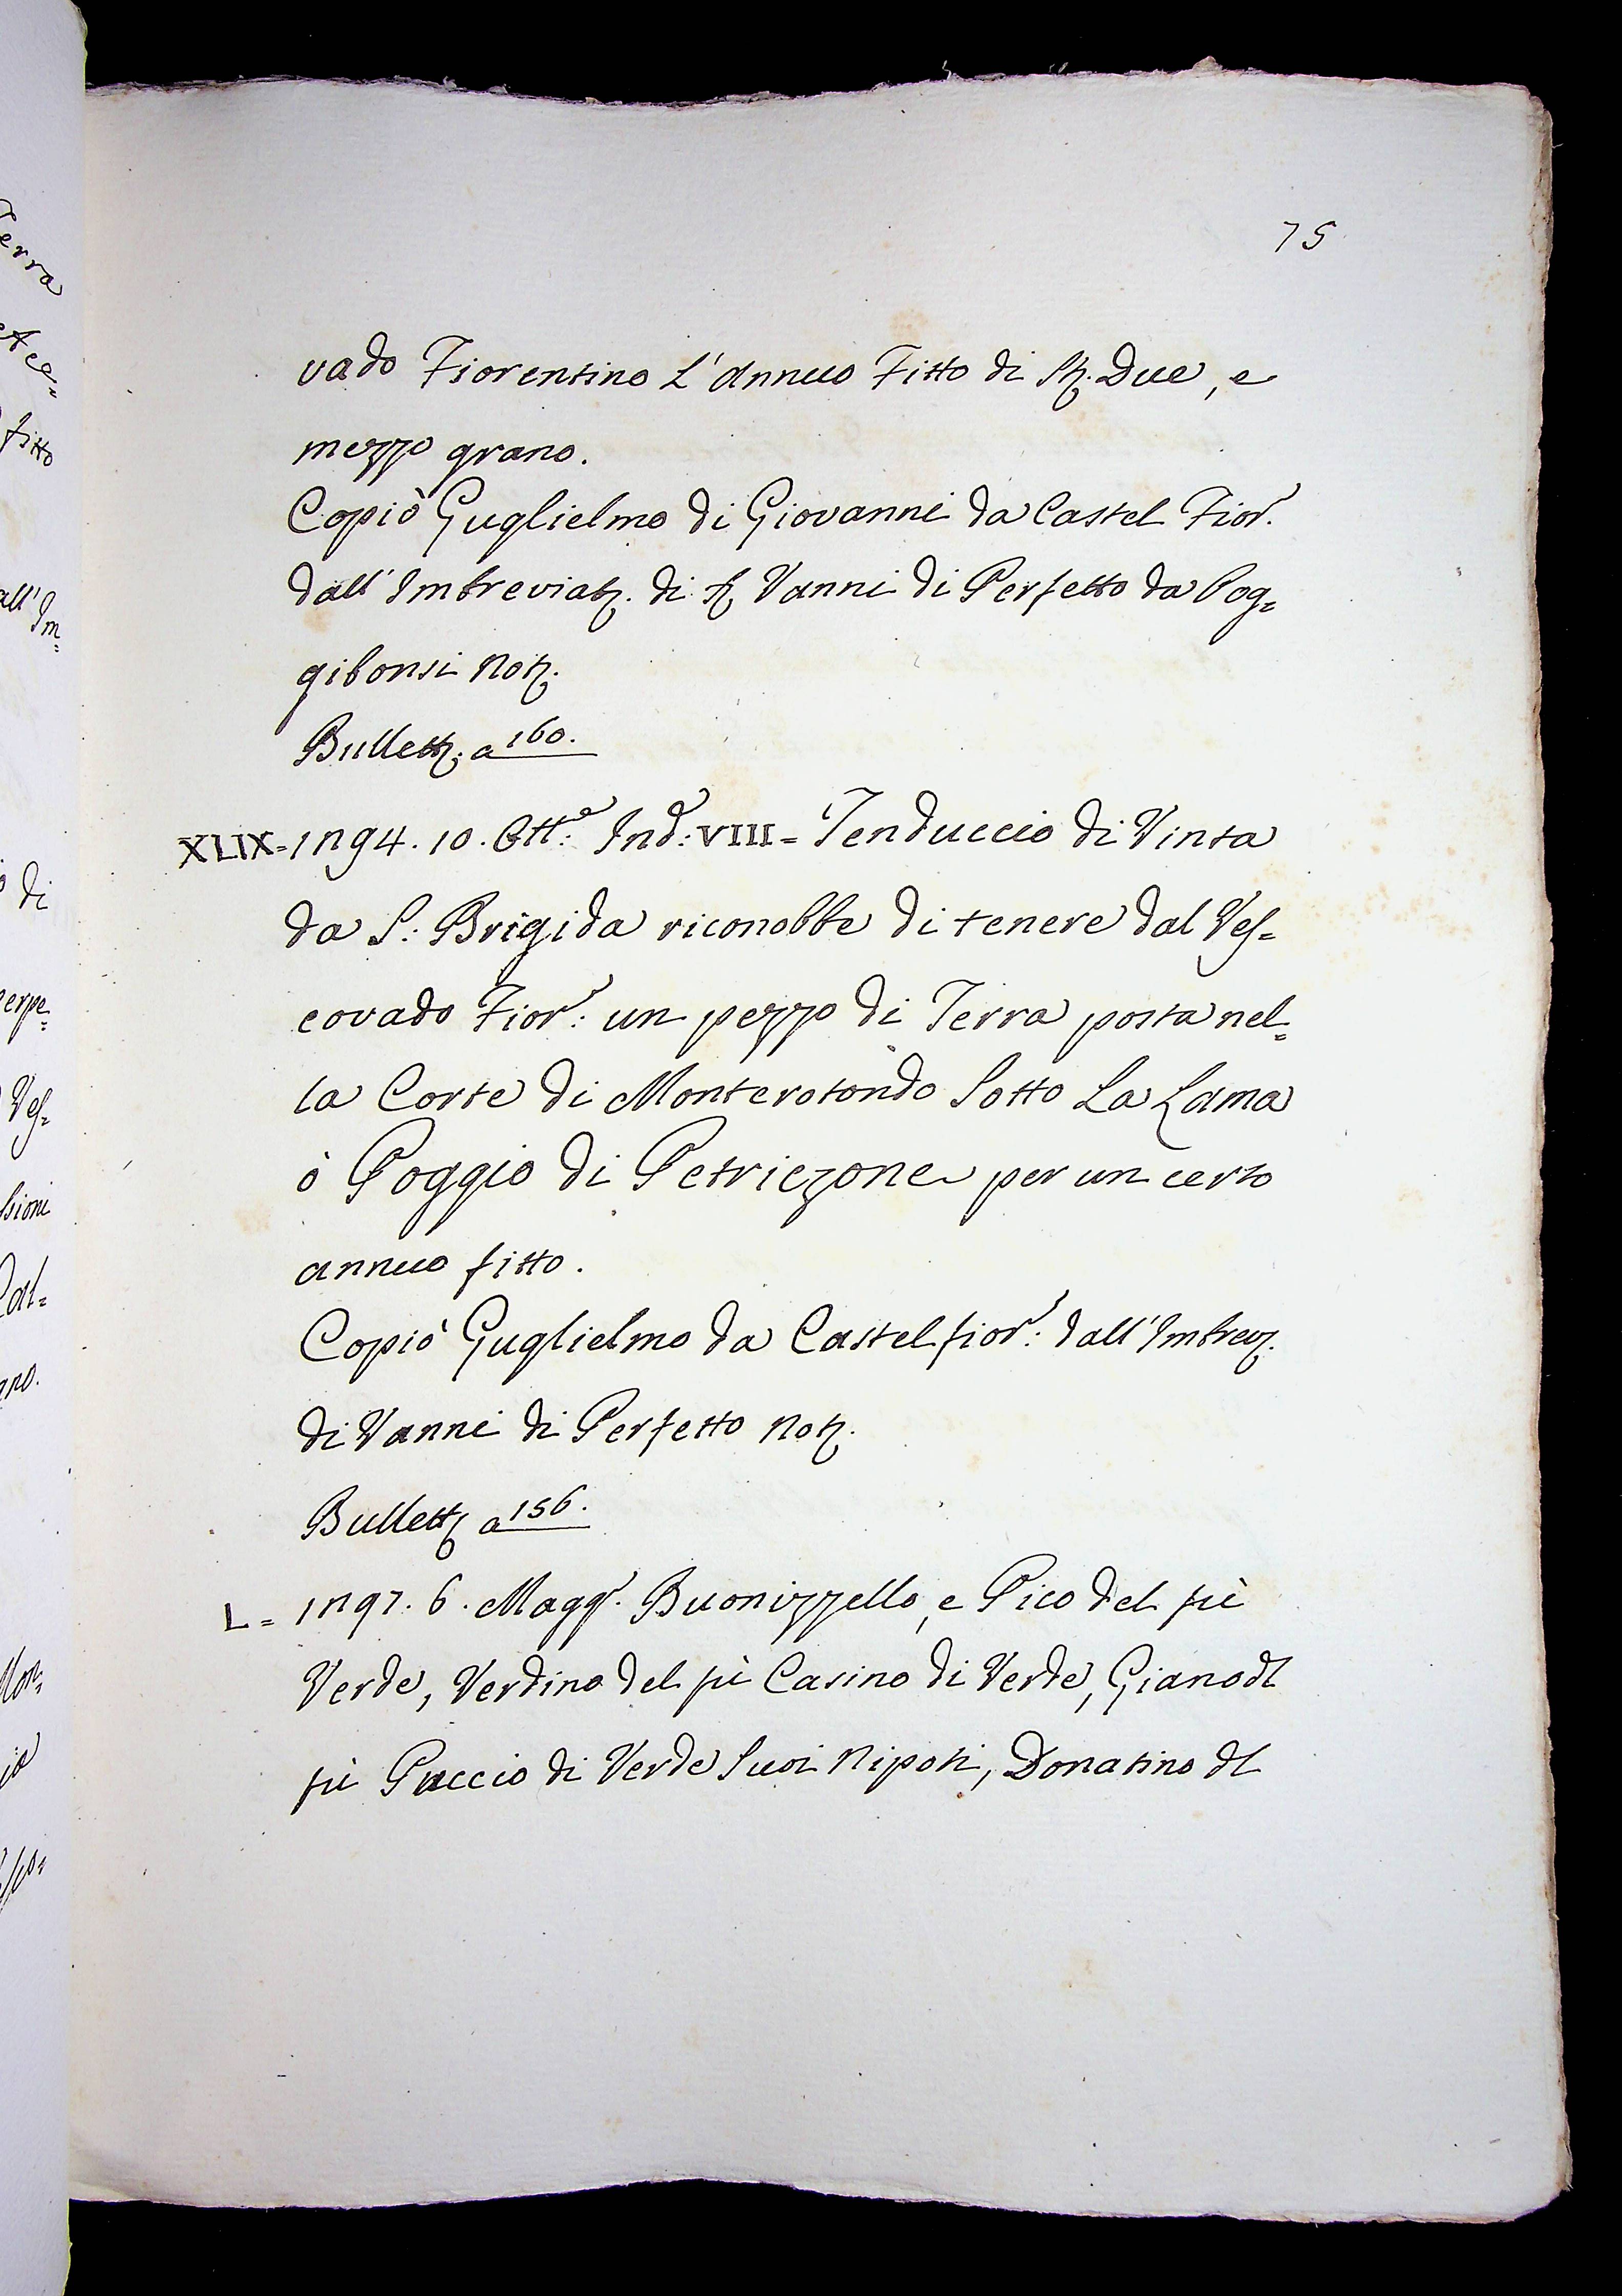 75
vado Fiorentino L'annuo Fitto di St. Due, e
mezzo grano.
Copiò Guglielmo di Giovanni da Castel Fior.
dall' Imbreviat. di S. Vanni di Perfetto da Pog=
gibonsi Not.
Bullett. a 160.
XLIX = 1294. 10. Ott.e Ind: VIII = Tenduccio di Vinta
da S: Brigida riconobbe di tenere dal Ves=
covado Fior: un pezzo di Terra posta nel=
la Corte di Monterotondo Sotto La Lama
ò Poggio di Petriezone per un certo
annuo fitto.
Copiò Guglielmo da Castelfior: dall' Imbrev.
di Vanni di Perfetto Not.
Bullett. a 156.
L = 1297. 6. Magg. Buonizzello, e Pico del fù
Verde, Verdino del fù Casino di Verde, Giano dl
fù Puccio di Verde Suoi Nipoti, Donatino dl